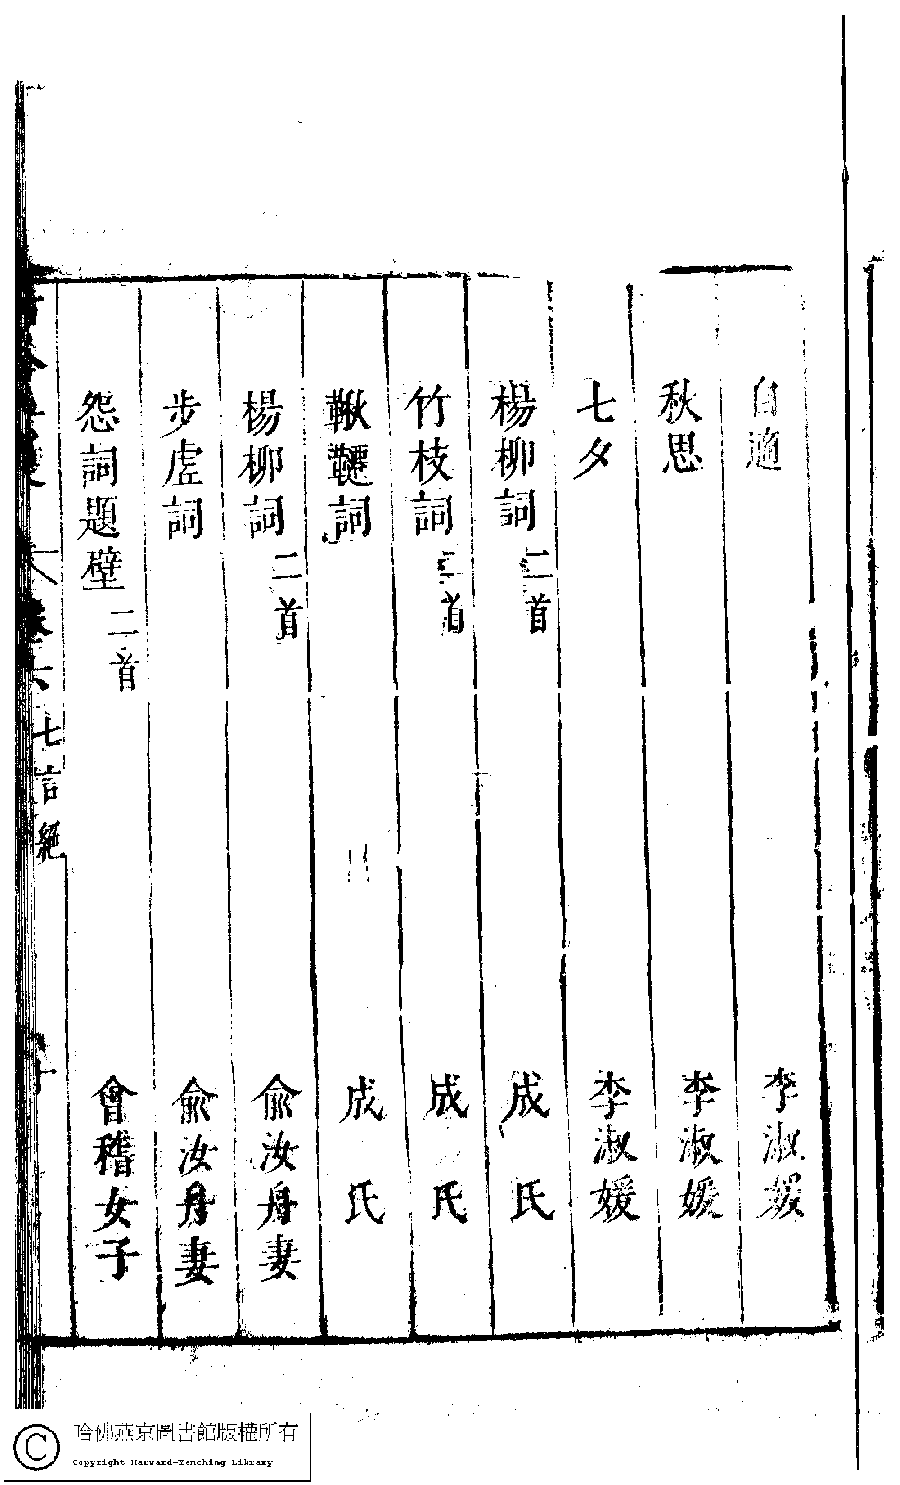 自適　李淑媛
秋思　李淑媛
七夕　李淑媛
楊柳詞　二首　成氏
竹枝詞　二首　成氏
鞦韆詞　成氏
楊柳詞　二首　俞汝舟妻
步虛詞　俞汝舟妻
怨詞題壁　二首　會稽女子
卷六　七言絕
哈佛燕京圖書館版權所有
Copyright Harvard-Yenching Library